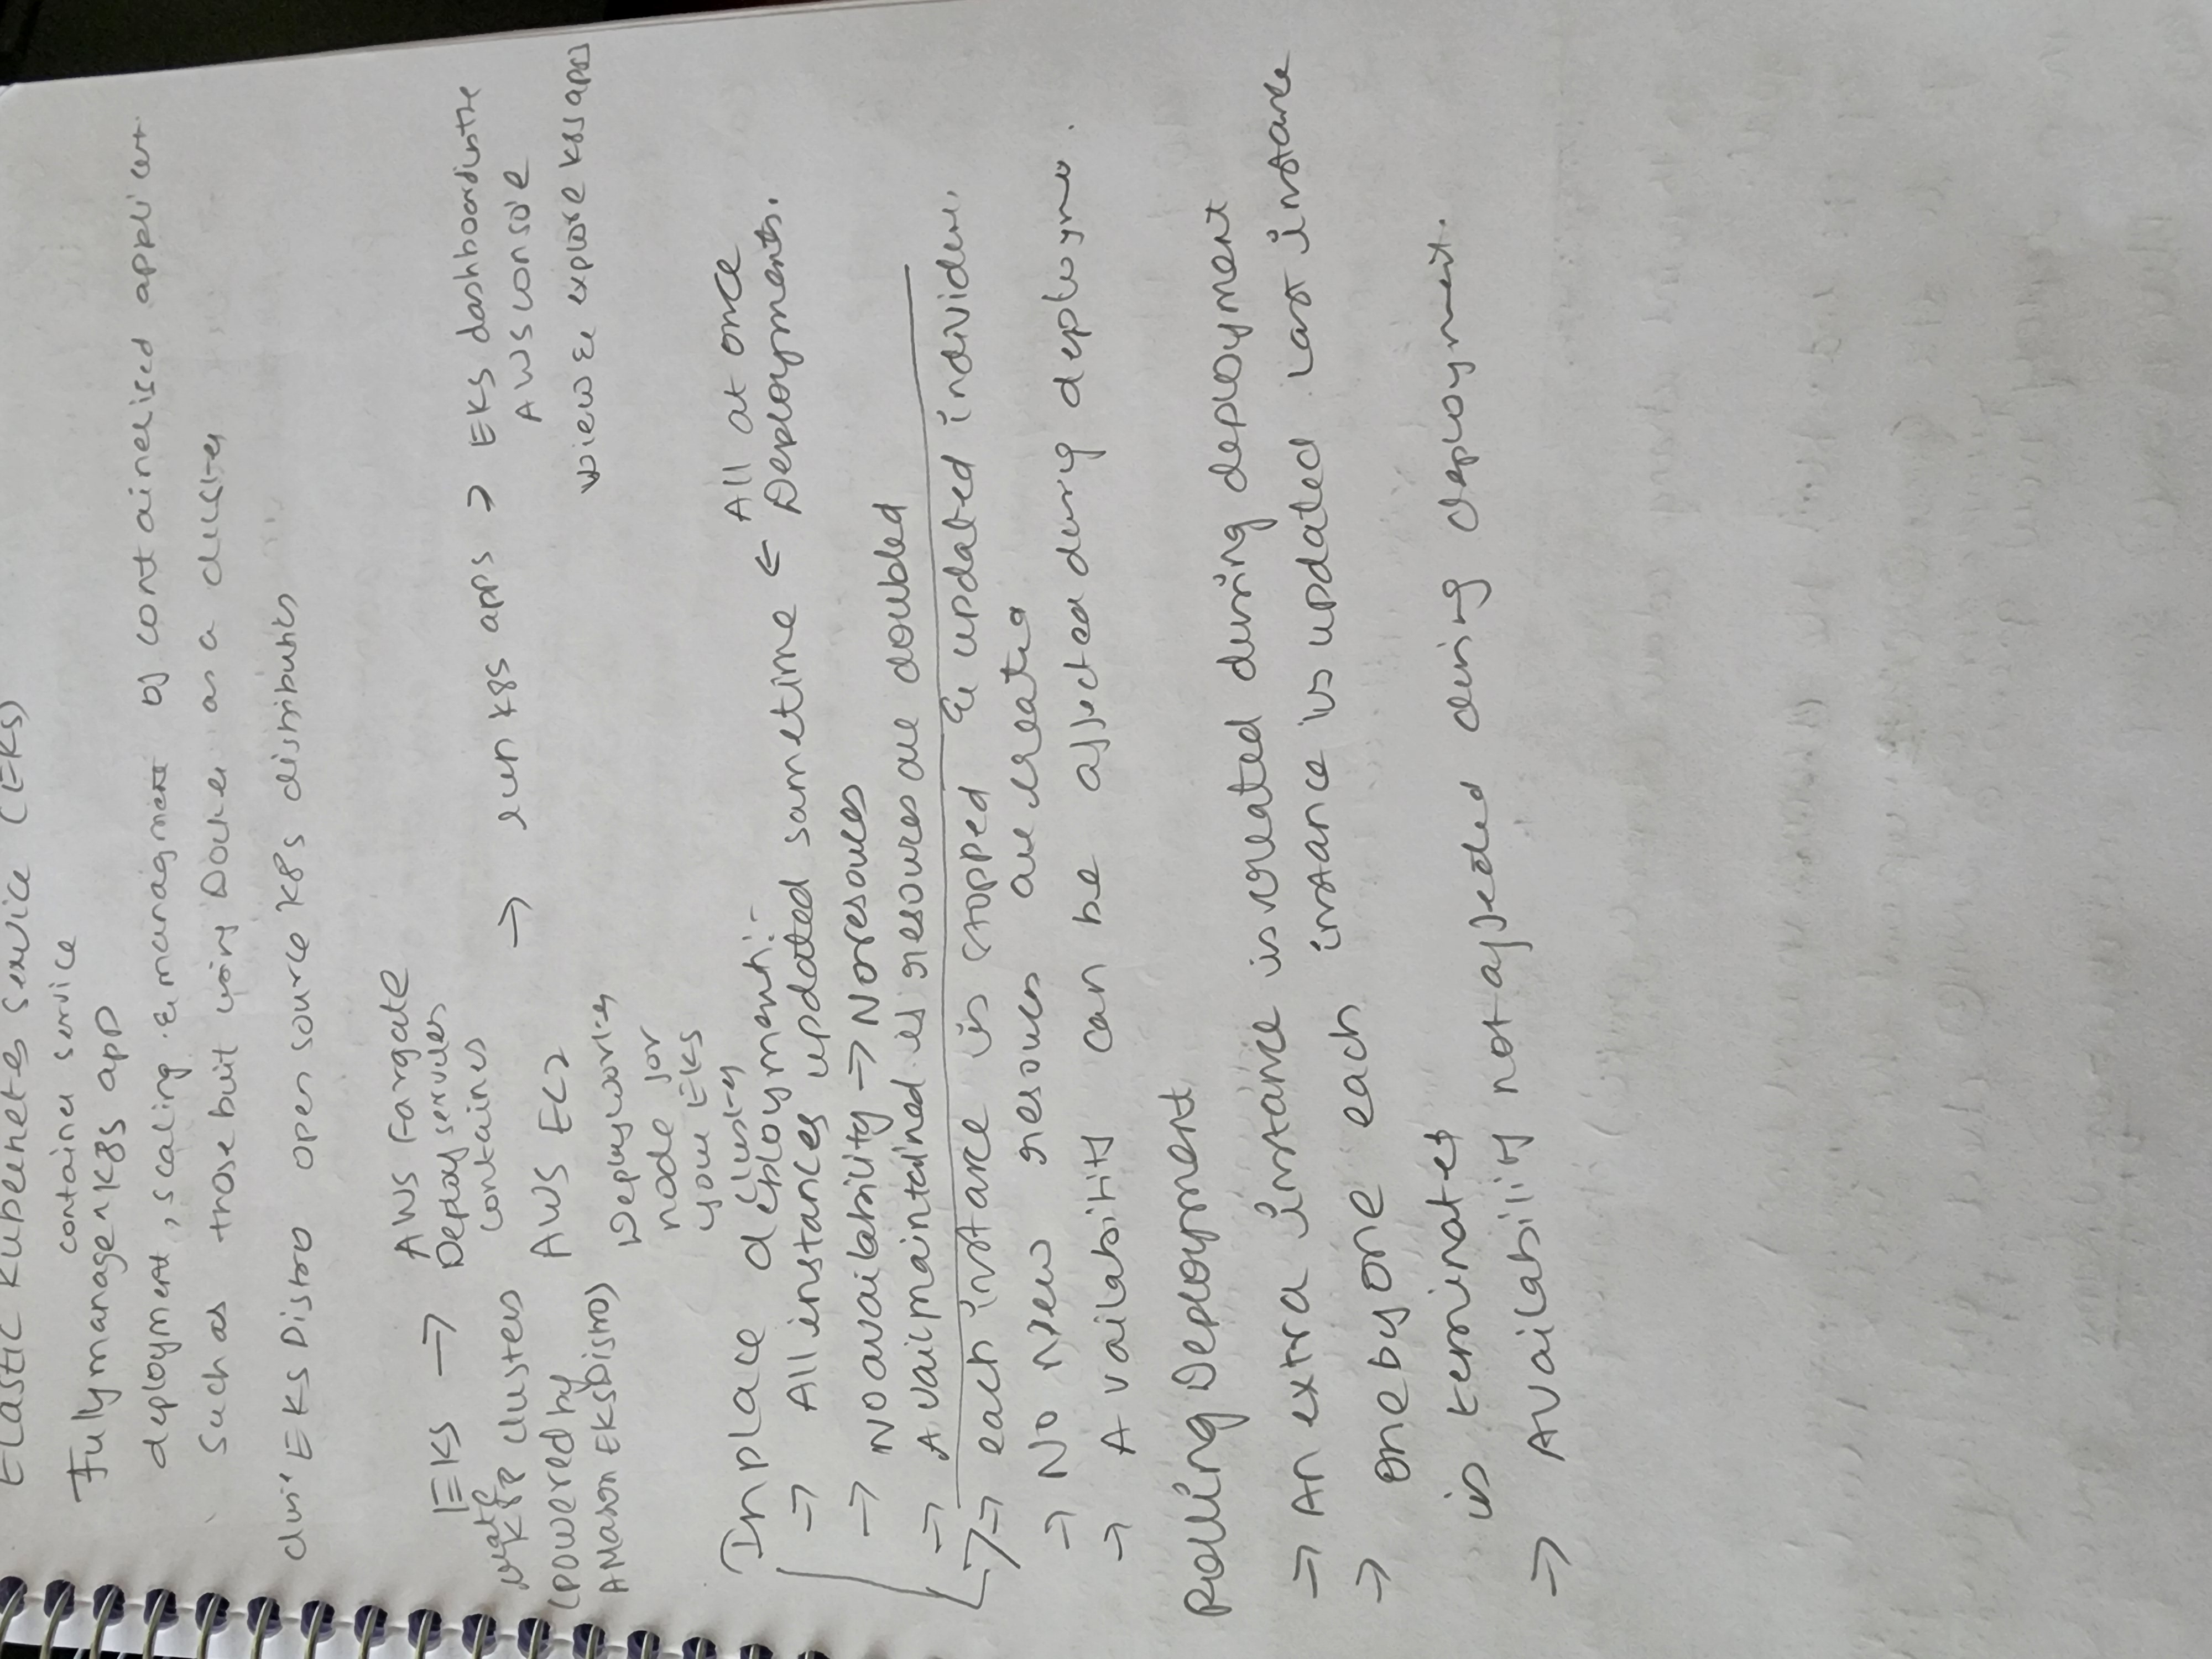 Elastic Kubernetes Service (EKS)
container service
Fully manage ^ K8s app
deployment, scaling & managment of containerised applicat
Such as those buit using Docker as a cluster
EKS Distro open source K8s distribution
EKS → AWS Fargate
Deploy services
containers
create
K8P clusters
(powered by
AMazon EKS Distro)
AWS EC2
Deploy worker
node for
your EKS
cluster
→ run K8S apps > EKS dashboard in the
AWS console
view & explore K8s apps
Inplace deployment:-
→ All instances updated sametime ← All at once
Deployments.
→ NO availability → No resouces
→ Avail maintained if resoures are doubled
→ each instance is stopped & updated individu
→ No new resouces are created
→ Availability can be affected during deployme.
Rolling Deployment
→ An extra instance is created during deployment
→ one by one each instance is updated last instance
is terminated
→ Availability not affected during deployment.